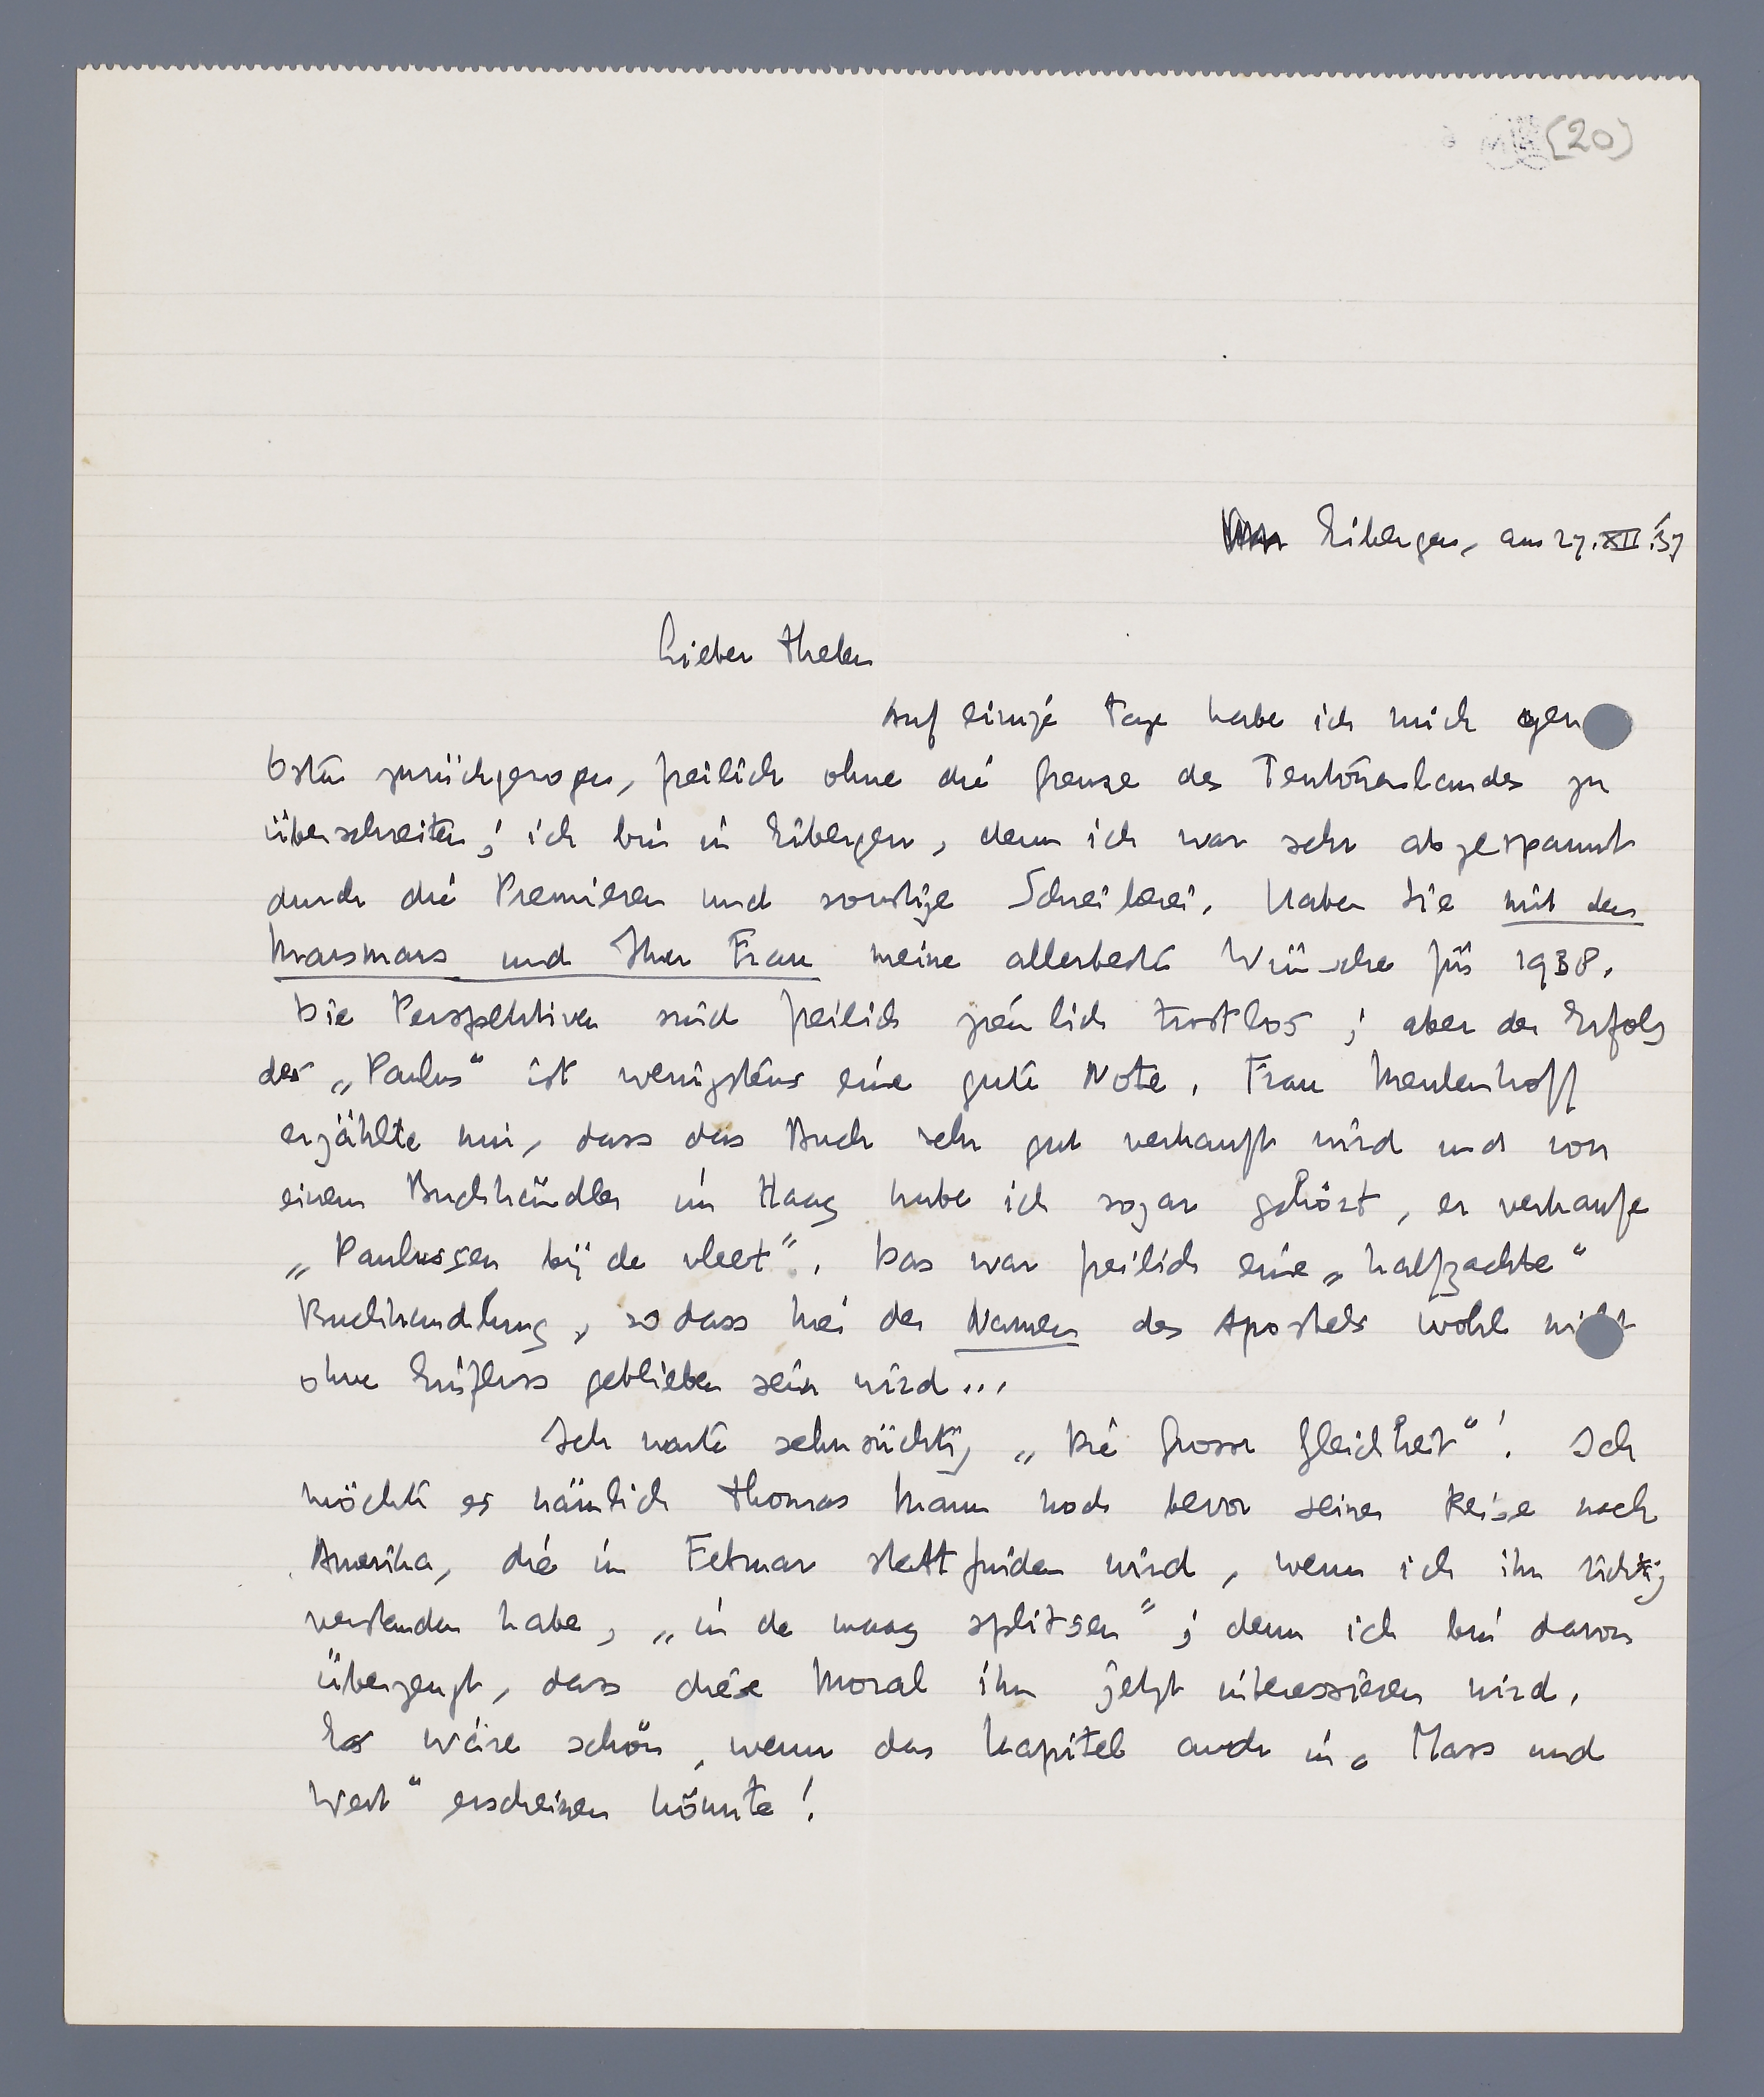 (20)
Eibergen, am 27.XII.'37
Lieber Thelen
Auf einige Tage habe ich mich gen
Osten zurückgezogen, freilich ohne die Grenze des Teutonenlandes zu
überschreiten; ich bin in Eibergen, denn ich war sehr abgespannt
durch die Premieren und sonstige Schreiberei. Haben Sie mit den
Marsmans und Ihrer Frau meine allerbesten Wünsche für 1938.
Die Perspektiven sind freilich ziemlich trostlos; aber der Erfolg
des „Paulus“ ist wenigstens eine gute Note. Frau Meulenhoff
erzählte mir, dass das Buch sehr gut verkauft wird und von
einem Buchhändler im Haag habe ich sogar gehört, er verkaufe
„Paulussen bij de vleet“. Das war freilich eine „halfzachte“
Buchhandlung, so dass hier der Namen des Apostels wohl nicht
ohne Einfluss geblieben sein wird...
Ich warte sehnsüchtig „Die Grosse Gleichheit“! Ich
möchte es nämlich Thomas Mann noch bevor seiner Reise nach
Amerika, die im Februar stattfinden wird, wenn ich ihn richtig
verstanden habe, „in de maag splitsen“; denn ich bin davon
überzeugt, dass diese Moral ihn jetzt interessieren wird.
Es wäre schön, wenn das Kapitel auch in „Mass und
Wert“ erscheinen könnte!